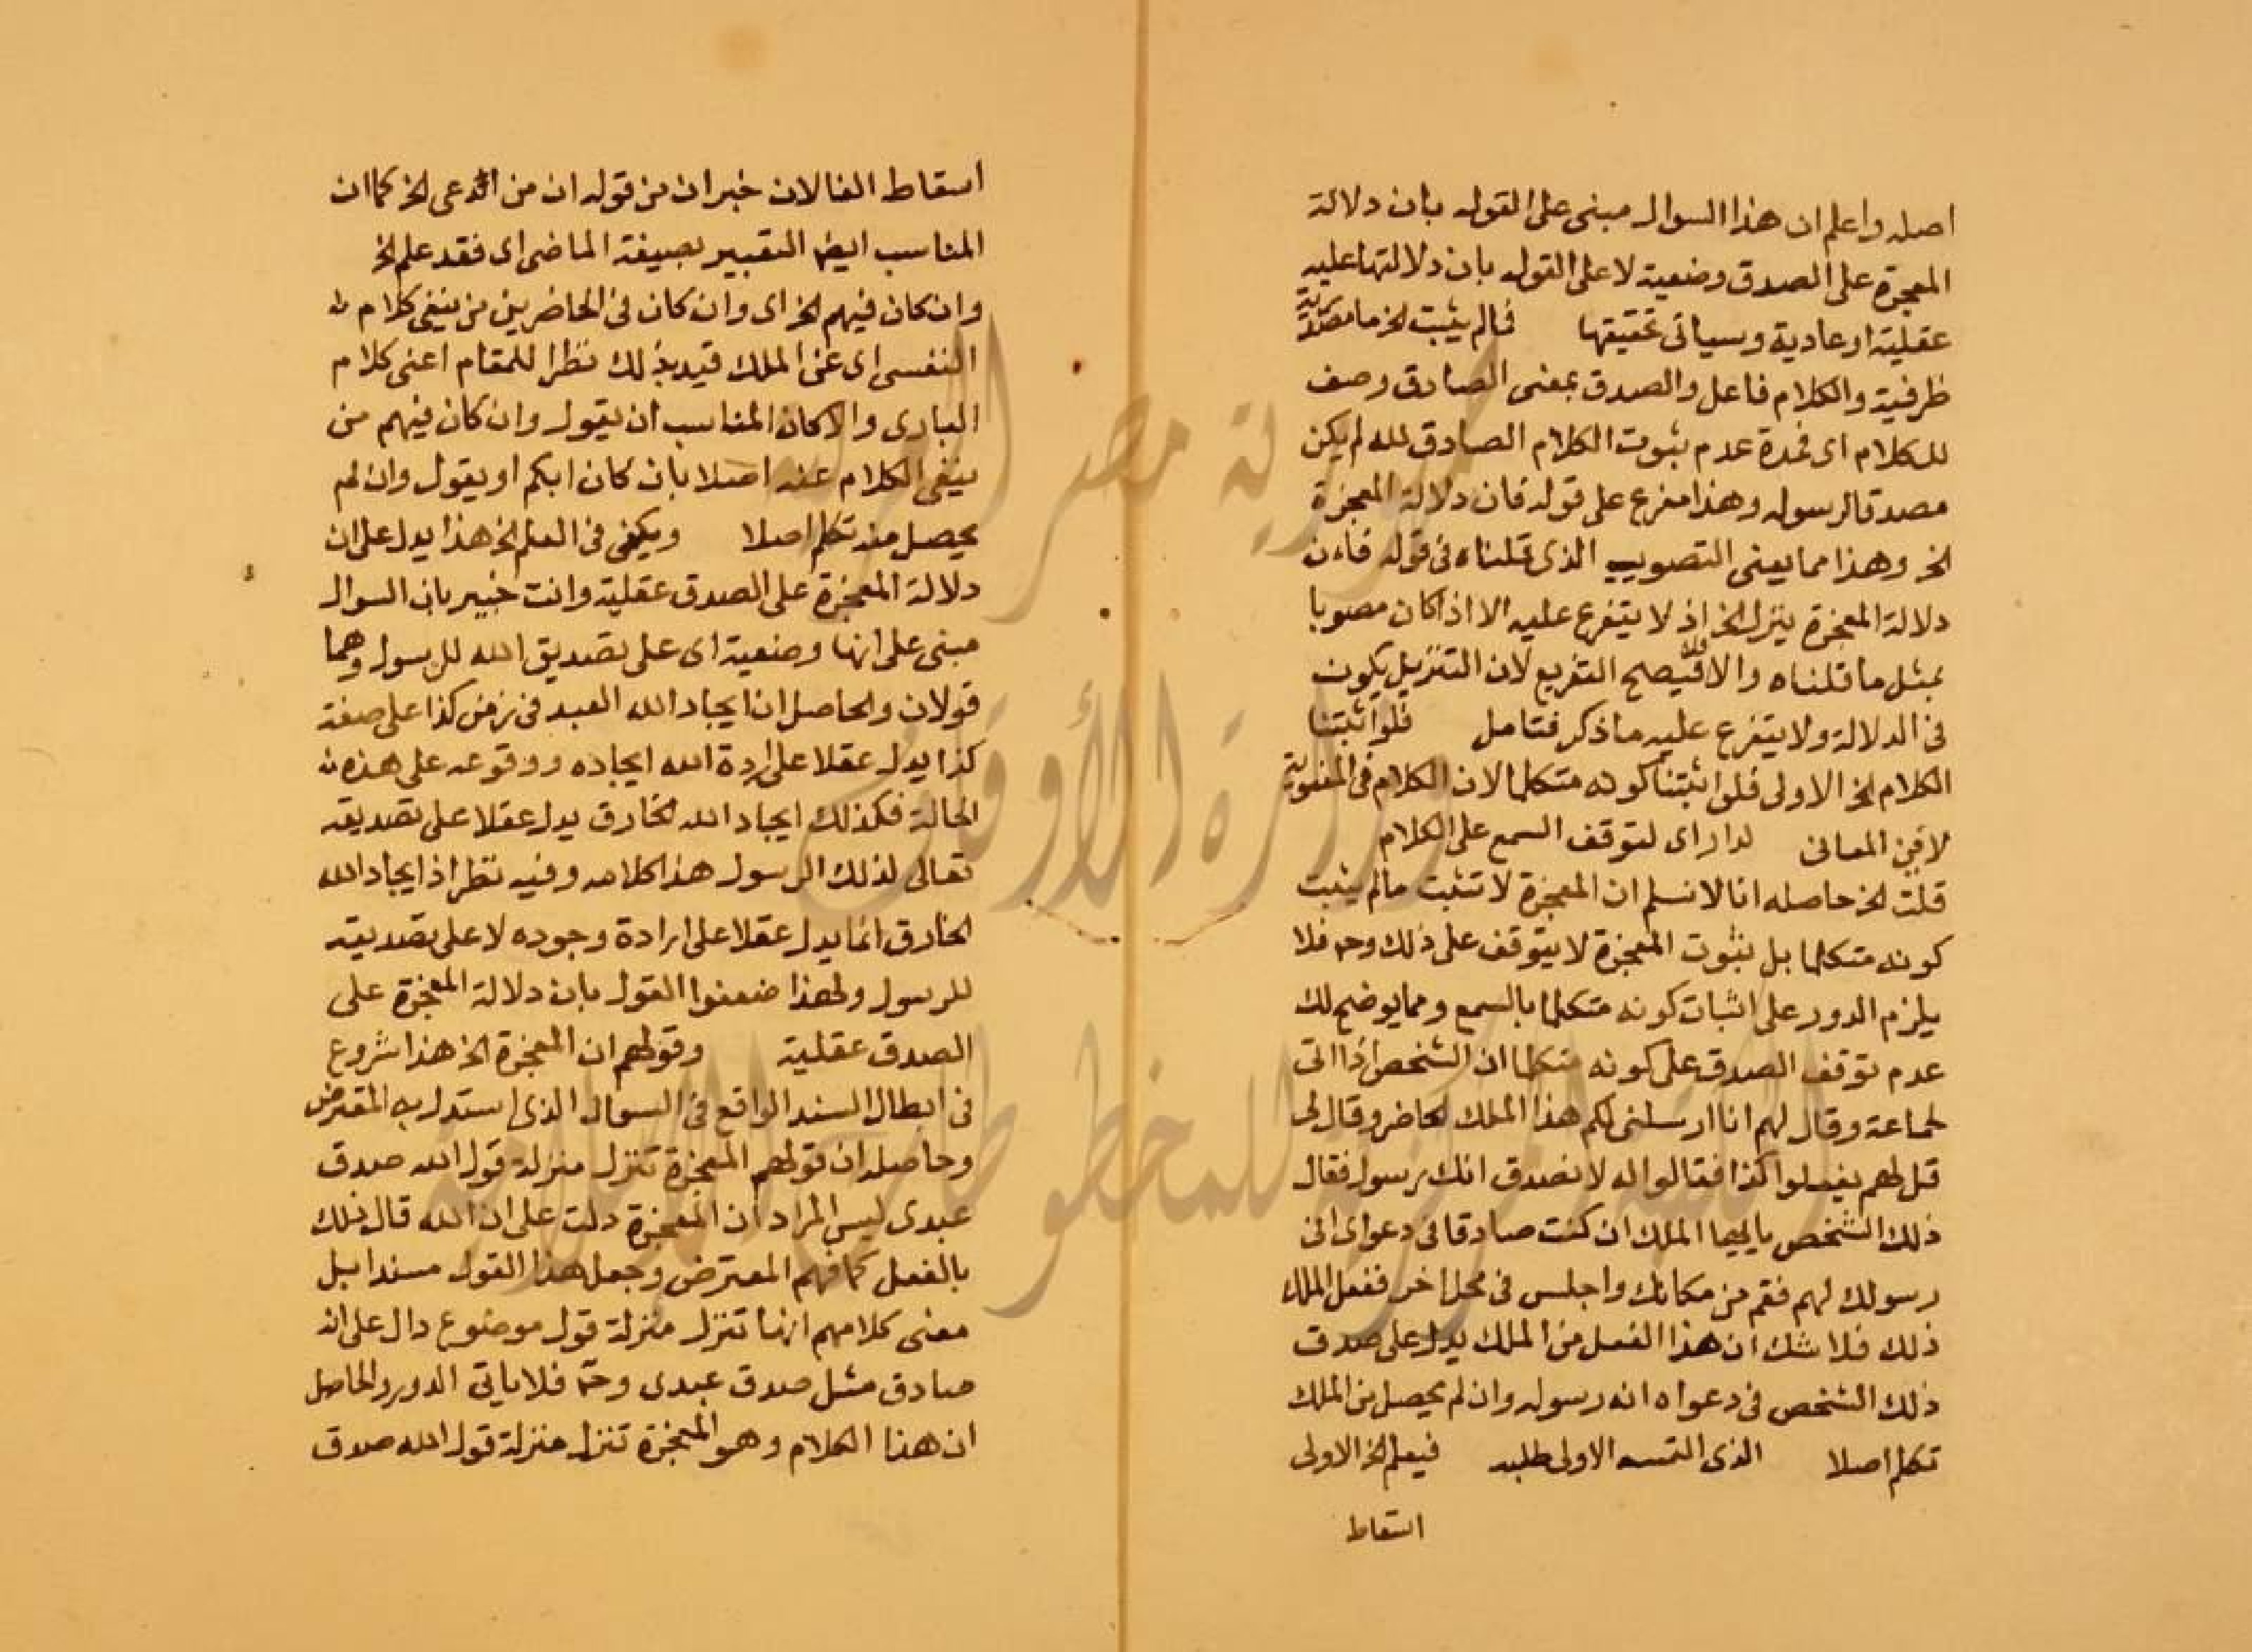 اصله واعلم ان هذا السوال مبنى على القول بان دلالة
المعجزة على الصدق وضعية لا على القول بان دلالتها عليه
عقلية او عادية وسياتى تحقيقها فالم يثبت الخ ما مصدرية
ظرفية والكلام فاعل والصدق بمعنى الصادق وصف
للكلام اى فمدة عدم ثبوت الكلام الصادق لله لم يكن
مصدقا لرسوله وهذا مفرع على قوله فان دلالة المعجزة
الخ وهذا مما يعنى التصويب الذى قلناه فى قوله فان
دلالة المعجزة ينزل الخ اذ لا يتفرع عليه الا اذا كان مصوبا
بمثل ما قلناه والا فلا يصح التفريع لان التنزيل يكون
فى الدلالة ولا يتفرع عليه ما ذكر فتامل فلو اثبتنا
الكلام الخ الاولى فلو اثبتنا كونه متكلما لان الكلام فى المعنوية
لا فى المعانى لدار اى لتوقف السمع على الكلام
قلت الخ حاصله انا لا نسلم ان المعجزة لا تثبت مالم يثبت
كونه متكلما بل ثبوت المعجزة لا يتوقف على ذلك وح فلا
يلزم الدور على اثبات كونه متكلما بالسمع ومما يوضح لك
عدم توقف الصدق على كونه متكلما ان الشخص اذا اتى
لجماعة وقال لهم انا ارسلنى لكم هذا الملك الحاضر وقال لى
قل لهم يفعلوا كذا فقالوا له لا نصدق انك رسول فقال
ذلك الشخص يا ايها الملك ان كنت صادقا فى دعواى انى
رسولك لهم فقم من مكانك واجلس فى محل اخر ففعل الملك
ذلك فلا شك ان هذا الفعل من الملك يدل على صدق
ذلك الشخص فى دعواه انه رسوله وان لم يحصل من الملك
تكلم اصلا الذى التمسه الاولى طلبه فيعلم الخ الاولى
اسقاط
اسقاط الفا لان خبر ان من قوله ان من ادعى الخ كما ان
المناسب ايضا التعبير بصيغة الماضى اى فقد علم الخ
وان كان فيهم الخ اى وان كان فى الحاضرين من ينفى كلام
النفسى اى عن الملك قيد بذلك نظرا للمقام اعنى كلام
البارى والا كان المناسب ان يقول وان كان فيهم من
ينفى الكلام عنه اصلا بان كان ابكم او يقول وان لم
يحصل منه تكلم اصلا ويكفى فى العلم الخ هذا يدل على ان
دلالة المعجزة على الصدق عقلية وانت خبير بان السوال
مبنى على انها وضعية اى على تصديق الله للرسول وهما
قولان والحاصل ان ايجاد الله العبد فى زمن كذا على صفة
كذا يدل عقلا على اردة الله ايجاده ووقوعه على هذه
الحالة فكذلك ايجاد الله الخارق يدل عقلا على تصديقه
تعالى لذلك الرسول هذا كلامه وفيه نظر اذ ايجاد الله
الخارق انما يدل عقلا على ارادة وجوده لا على تصديقه
للرسول ولهذا ضعفوا القول بان دلالة المعجزة على
الصدق عقلية وقولهم ان المعجزة الخ هذا شروع
فى ابطال السند الواقع فى السوال الذى استدل به المعترض
وحاصله ان قولهم المعجزة تنزل منزلة قول الله صدق
عبدى ليس المراد ان المعجزة دلت على ان الله قال ذلك
بالفعل كما فهم المعترض وجعل هذا القول مسندا بل
معنى كلامهم انها تنزل منزلة قول موضوع دال على انه
صادق مثل صدق عبدى وح فلا ياتى الدور والحاصل
ان هذا الكلام وهو المعجزة تنزل منزلة قول الله صدق
جمهورية مصر العربية
وزارة الأوقاف
المكتبة المركزية للمخطوطات الإسلامية